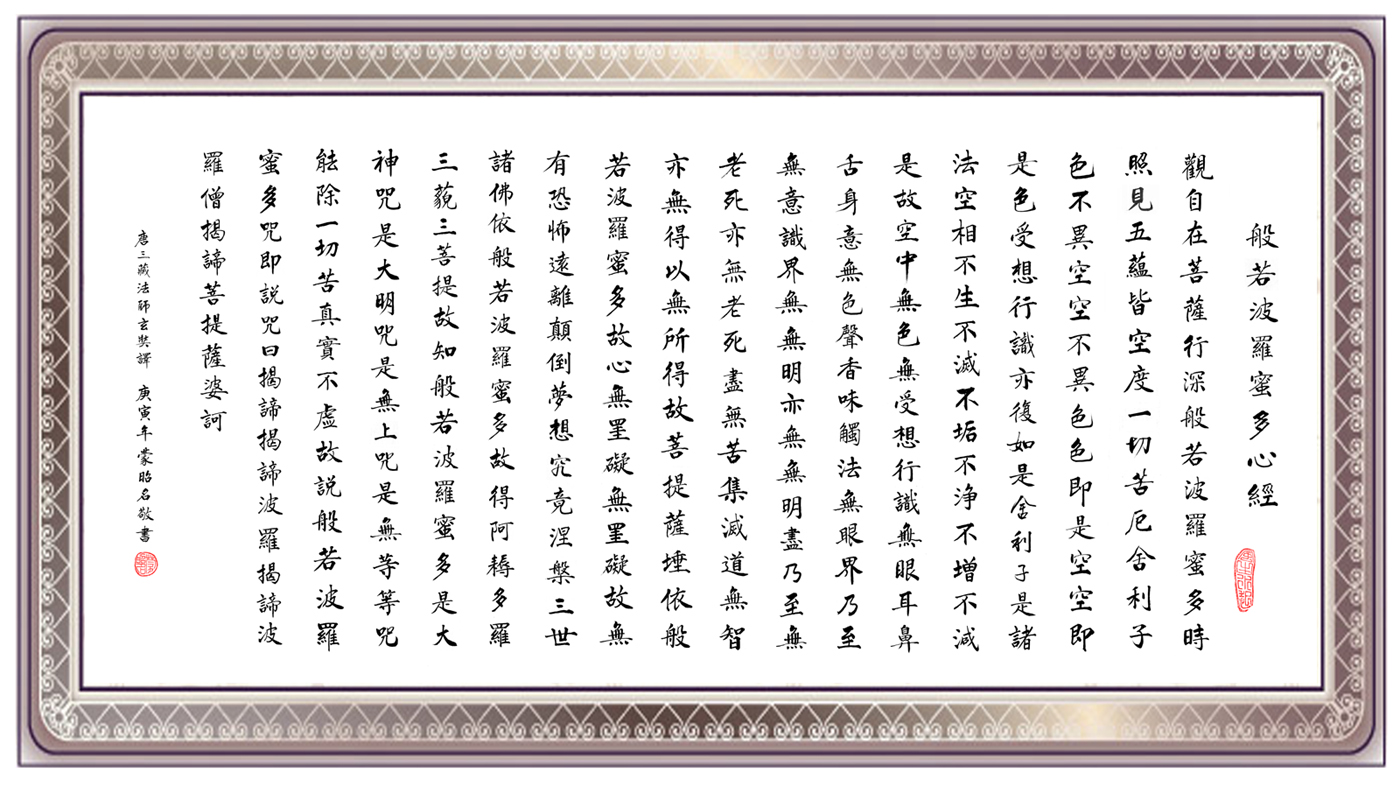 般若波羅蜜多心經
觀自在菩薩行深般若波羅蜜多時
照見五蘊皆空度一切苦厄舍利子
色不異空空不異色色即是空空即
是色受想行識亦復如是舍利子是諸
法空相不生不滅不垢不净不增不減
是故空中無色無受想行識無眼耳鼻
舌身意無色聲香味觸法無眼界乃至
無意識界無無明亦無無明盡乃至無
老死亦無老死盡無苦集滅道無智
亦無得以無所得故菩提薩埵依般
若波羅蜜多故心無罣礙無罣礙故無
有恐怖遠離顛倒夢想究竟涅槃三世
諸佛依般若波羅蜜多故得阿耨多羅
三藐三菩提故知般若波羅蜜多是大
神咒是大明咒是無上咒是無等等咒
能除一切苦真實不虛故説般若波羅
蜜多咒即説咒曰揭諦揭諦波羅揭諦波
羅僧揭諦菩提薩婆訶
唐三藏法師玄奘譯 庚寅年蒙昭名敬書